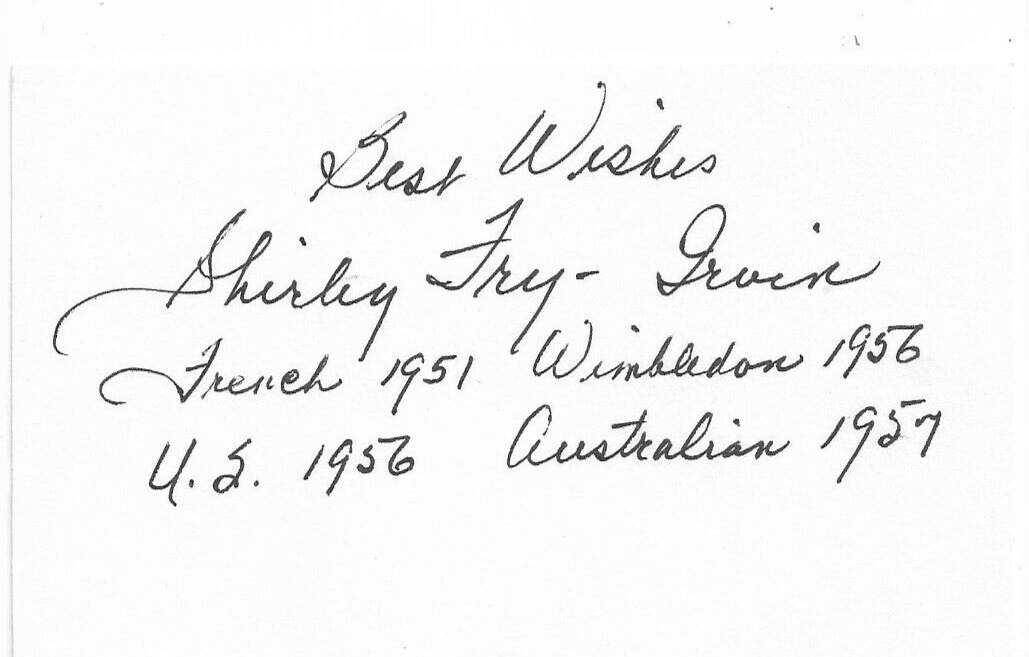 Best Wishes
Shirley Fry- Irvin
French 1951 Wimbledon 1956
U.S. 1956 Australian 1957